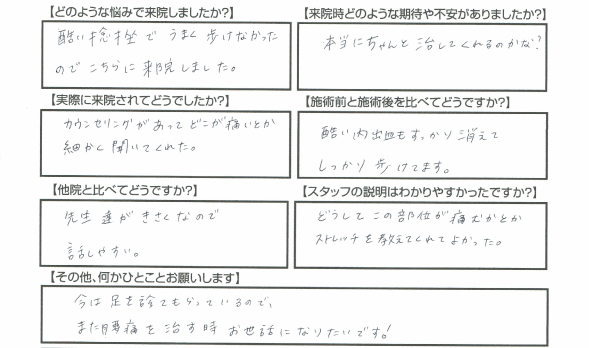 【どのような悩みで来院しましたか?】
酷い捻挫で うまく歩けなかった
のでこちらに来院しました。
【来院時どのような期待や不安がありましたか?】
本当にちゃんと治してくれるのかな?
【実際に来院されてどうでしたか?】
カウンセリングがあってどこが痛いとか
細かく聞いてくれた。
【施術前と施術後を比べてどうですか?】
酷い内出血もすっかり消えて
しっかり歩けてます。
【他院と比べてどうですか?】
先生達がきさくなので
話しやすい。
【スタッフの説明はわかりやすかったですか?】
どうしてこの部位が痛むかとか
ストレッチを教えてくれてよかった。
【その他、何かひとことお願いします】
今は足を診てもらっているので、
また腰痛を治す時お世話になりたいです!